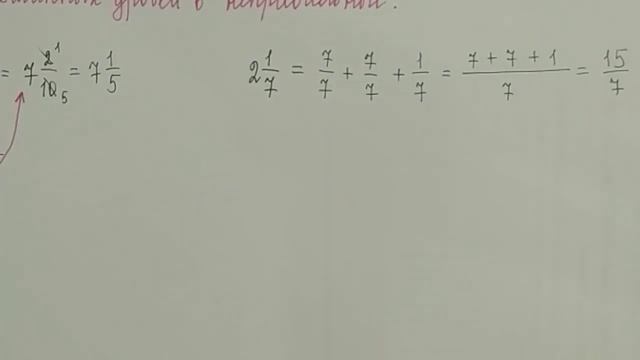 дробей в неправильной.
= 7 2/10 1 5 = 7 1/5
2 1/7 = 7/7 + 7/7 + 1/7 = (7 + 7 + 1)/7 = 15/7